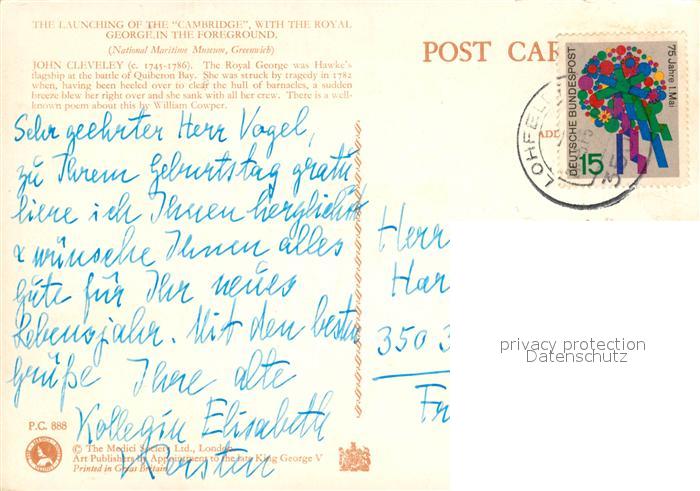 THE LAUNCHING OF THE "CAMBRIDGE", WITH THE ROYAL
GEORGE IN THE FOREGROUND.
(National Maritime Museum, Greenwich)
JOHN CLEVELEY (c. 1745-1786). The Royal George was Hawke's
flagship at the battle of Quiberon Bay. She was struck by tragedy in 1782
when, having been heeled over to clear the hull of barnacles, a sudden
breeze blew her right over and she sank with all her crew. There is a well-
known poem about this by William Cowper.
Sehr geehrter Herr Vogel,
zu Ihrem Geburtstag gratu
liere ich Ihnen herzlichst
& wünsche Ihnen alles
Gute für Ihr neues
Lebensjahr. Mit den besten
Grüße Ihre alte
Kollegin Elisabeth
Kersten
P.C. 888
© The Medici Society Ltd., London
Art Publishers by Appointment to the late King George V
Printed in Great Britain
POST CAR
ADD
DEUTSCHE BUNDESPOST
75 Jahre 1. Mai
15
LOHFEL
35
Herr
Har
350 3
Fr
privacy protection
Datenschutz